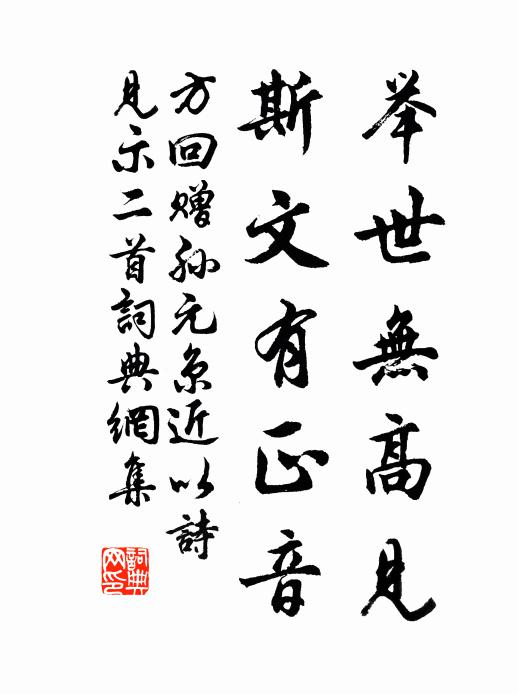 举世無高見
斯文有正音
方回赠孙元京近以詩
見示二首詞典網集
詞典網印